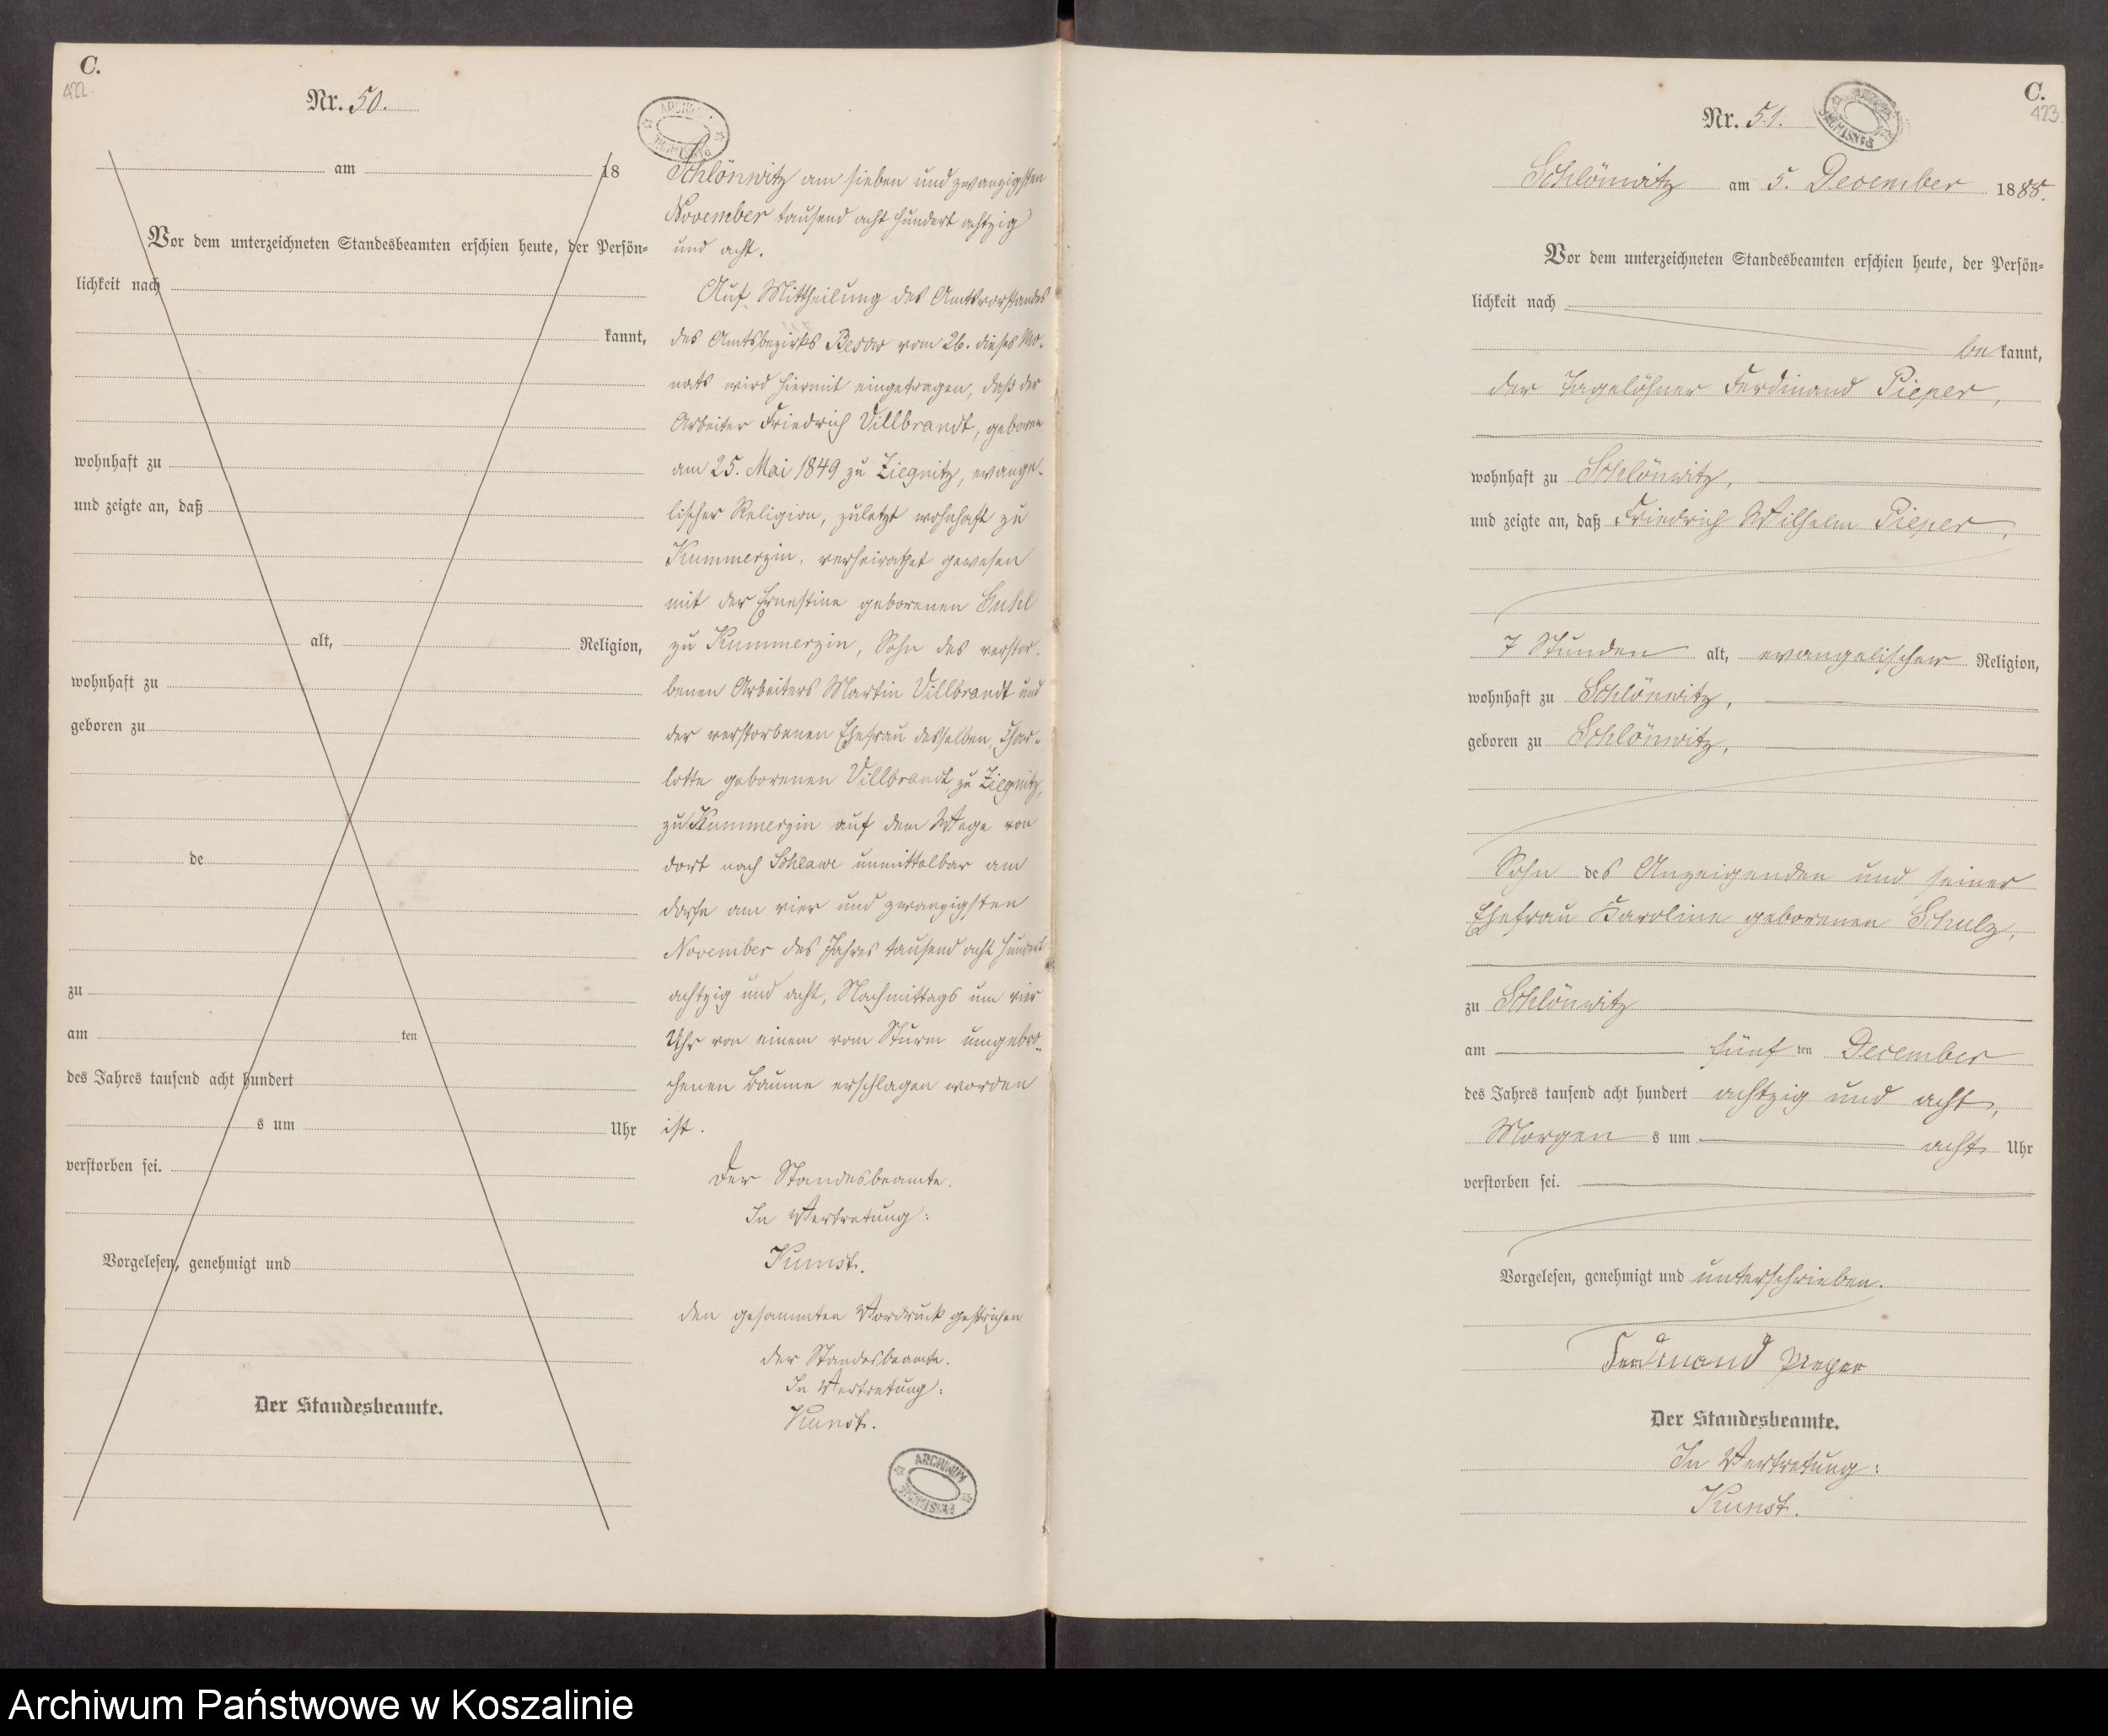 C.
422.
Nr. 50.
am 18
Vor dem unterzeichneten Standesbeamten erschien heute, der Persön-
lichkeit nach
kannt,
wohnhaft zu
und zeigte an, daß
alt, Religion,
wohnhaft zu
geboren zu
de
zu
am ten
des Jahres tausend acht hundert
s um Uhr
verstorben sei.
Vorgelesen, genehmigt und
Der Standesbeamte.
Schlönwitz am sieben und zwanzigsten
November tausend acht hundert achtzig
und acht.
Auf Mittheilung des Amtsvorstandes
des Amtsbezirks Besow vom 26. dieses Mo-
nats wird hiermit eingetragen, daß der
Arbeiter Friedrich Villbrandt, geboren
am 25. Mai 1849 zu Ziegnitz, evange-
lischer Religion, zuletzt wohnhaft zu
Kummerzin, verheirathet gewesen
mit der Ernestine geborenen Guhl
zu Kummerzin, Sohn des verstor-
benen Arbeiters Martin Villbrandt und
der verstorbenen Ehefrau desselben, Char-
lotte geborenen Villbrandt, zu Ziegnitz,
zu Kummerzin auf dem Wege von
dort nach Schlawe unmittelbar am
Dorfe am vier und zwanzigsten
November des Jahres tausend acht hundert
achtzig und acht, Nachmittags um vier
Uhr von einem vom Sturm umgebro-
chenen Baume erschlagen worden
ist.
Der Standesbeamte.
In Vertretung:
Kunst.
Den gesammten Vordruck gestrichen
Der Standesbeamte.
In Vertretung:
Kunst.
ARCHIWUM PAŃSTWOWE
C.
423.
Nr. 51.
Schlönwitz am 5. December 1888.
Vor dem unterzeichneten Standesbeamten erschien heute, der Persön-
lichkeit nach
be kannt,
der Tagelöhner Ferdinand Pieper,
wohnhaft zu Schlönwitz,
und zeigte an, daß Friedrich Wilhelm Pieper,
7 Stunden alt, evangelischer Religion,
wohnhaft zu Schlönwitz,
geboren zu Schlönwitz,
Sohn des Anzeigenden und seiner
Ehefrau Karoline geborenen Schulz,
zu Schlönwitz
am fünf ten December
des Jahres tausend acht hundert achtzig und acht,
Morgen s um acht Uhr
verstorben sei.
Vorgelesen, genehmigt und unterschrieben.
Ferdinand Pieper
Der Standesbeamte.
In Vertretung:
Kunst.
Archiwum Państwowe w Koszalinie